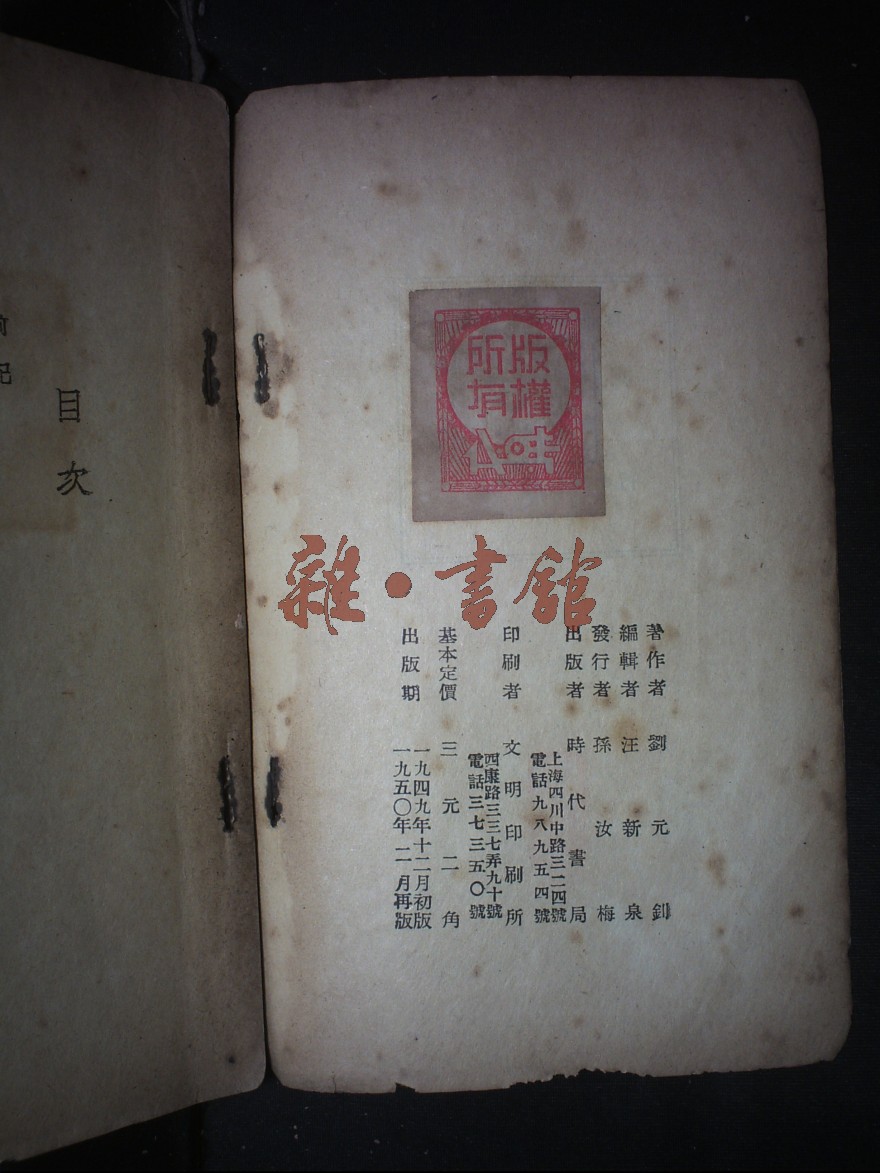 目次
前記
版權
所有
雜·書館
著作者 劉元釗
編輯者 汪新泉
發行者 孫汝梅
出版者 時代書局
上海四川中路三二四號
電話九八九五四號
印刷者 文明印刷所
西康路三三七弄九十號
電話三七三五〇號
基本定價 三元二角
出版期 一九四九年十二月初版
一九五〇年二月再版